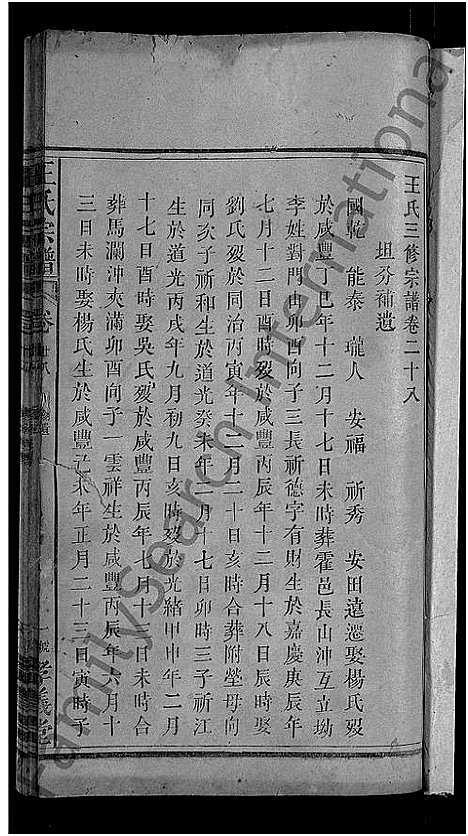 王氏三修宗譜卷二十八
坦分補遺
國乾 能泰 瓏人 安福 祈秀 安田遠遷娶楊氏歿
於咸豐丁巳年十二月十七日未時葬霍邑長山沖互立坳
李姓對門由卯酉向子三長祈德字有財生於嘉慶庚辰年
七月十二日酉時歿於咸豐丙辰年十二月十八日辰時娶
劉氏歿於同治丙寅年十二月二十日亥時合葬附塋母向
同次子祈和生於道光癸未年二月十七日卯時三子祈江
生於道光丙戌年九月初九日亥時歿於光緒甲申年二月
十七日酉時娶吳氏歿於咸豐丙辰年七月十三日未時合
葬馬瀾沖夾滿卯酉向子一雲祥生於咸豐丙辰年六月十
三日未時娶楊氏生於咸豐己未年正月二十三日寅時子
王氏宗譜
卷
廿八
一號
孝義堂
FamilySearch International